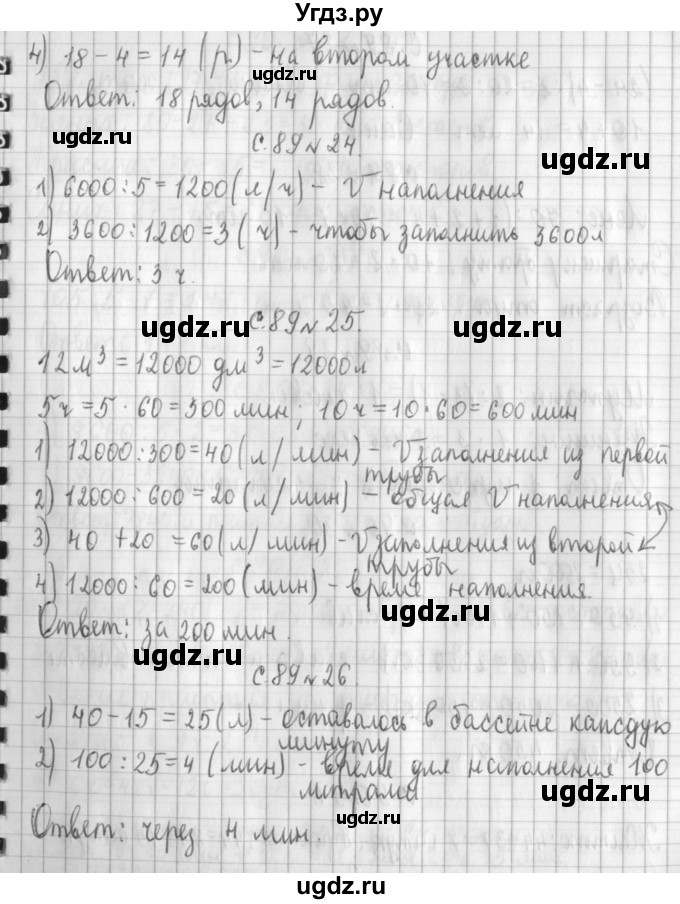 Угдз.ру
4) 18 - 4 = 14 (р.) - на втором участке
ugdz.ru
Ответ: 18 рядов, 14 рядов.
ugdz.ru ugdz.ru
с. 89 № 24.
ugdz.ru
1) 6000 : 5 = 1200 (л/ч) - V наполнения
2) 3600 : 1200 = 3 (ч) - чтобы заполнить 3600 л
ugdz.ru
Ответ: 3 ч.
с. 89 № 25.
ugdz.ru ugdz.ru
12 м³ = 12000 дм³ = 12000 л
ugdz.ru
5 ч = 5 · 60 = 300 мин ; 10 ч = 10 · 60 = 600 мин
1) 12000 : 300 = 40 (л/мин) - V заполнения из первой
трубы
ugdz.ru ugdz.ru
2) 12000 : 600 = 20 (л/мин) - общая V наполнения
ugdz.ru
3) 40 + 20 = 60 (л/мин) - V заполнения из второй
трубы
4) 12000 : 60 = 200 (мин) - время наполнения.
ugdz.ru
Ответ: за 200 мин.
ugdz.ru ugdz.ru
с. 89 № 26.
ugdz.ru
1) 40 - 15 = 25 (л) - оставалось в бассейне каждую
минуту
2) 100 : 25 = 4 (мин) - время для наполнения 100
литрами
ugdz.ru ugdz.ru
Ответ: через 4 мин.
ugdz.ru
ugdz.ru